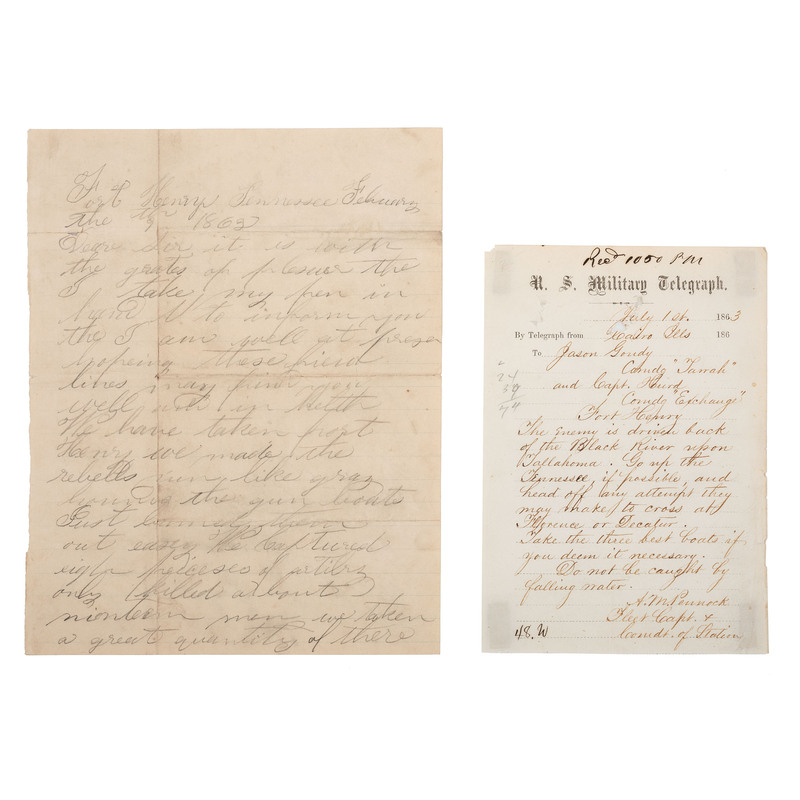 Fort Henry Tennessee February
the 7 1863
Dear Sir it is with
the grates of plesuer the
I take my pen in
hand to inform you
the I am well at presen
hopeing these few
lines may find you
well and in helth
We have taken fort
Henry we made the
rebells run like gray
hounds the gun boats
Just
out easy We Captured
eigh peiceses of artilry
only killed a bout
ninteen men we taken
a great quantity of there
Recd 1050 P.M
U. S. Military Telegraph.
July 1st. 1863
By Telegraph from Cairo Ills 186
To Jason Goudy
Comdg "Tarrah"
and Capt. Hurd
Comdg "Exchange"
Fort Henry
The Enemy is driven back
of the Black River upon
Tallahoma. Go up the
Tennessee, if possible, and
head off any attempt they
may make to cross at
Florence or Decatur.
Take the three best boats if
you deem it necessary.
Do not be caught by
falling water.
A. M. Pennock
Fleet Capt. &
Comdt. of Station
48. W